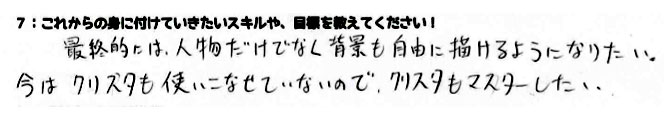 7：これからの身に付けていきたいスキルや、目標を教えてください！
最終的には、人物だけでなく背景も自由に描けるようになりたい。
今はクリスタも使いこなせていないので、クリスタもマスターしたい。